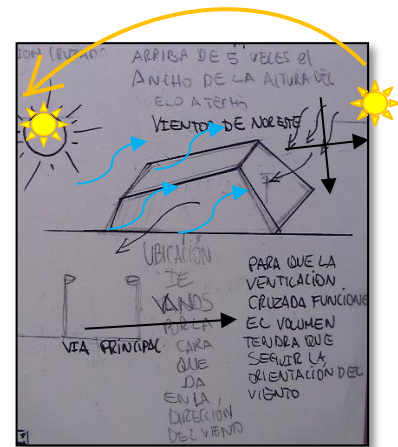 ION CRUZADA
ARRIBA DE 5 VECES el
ANCHO DE LA ALTURA DEL
ELO A TECHO
VIENTOS DE NORESTE
UBICACION
DE
VANOS
POR LA
CARA
QUE
DA
EN LA
DIRECCION
DEL VIENTO
VIA PRINCIPAL
PARA QUE LA
VENTILACION
CRUZADA FUNCIONE
EL VOLUMEN
TENDRA QUE
SEGUIR LA
ORIENTACION DEL
VIENTO